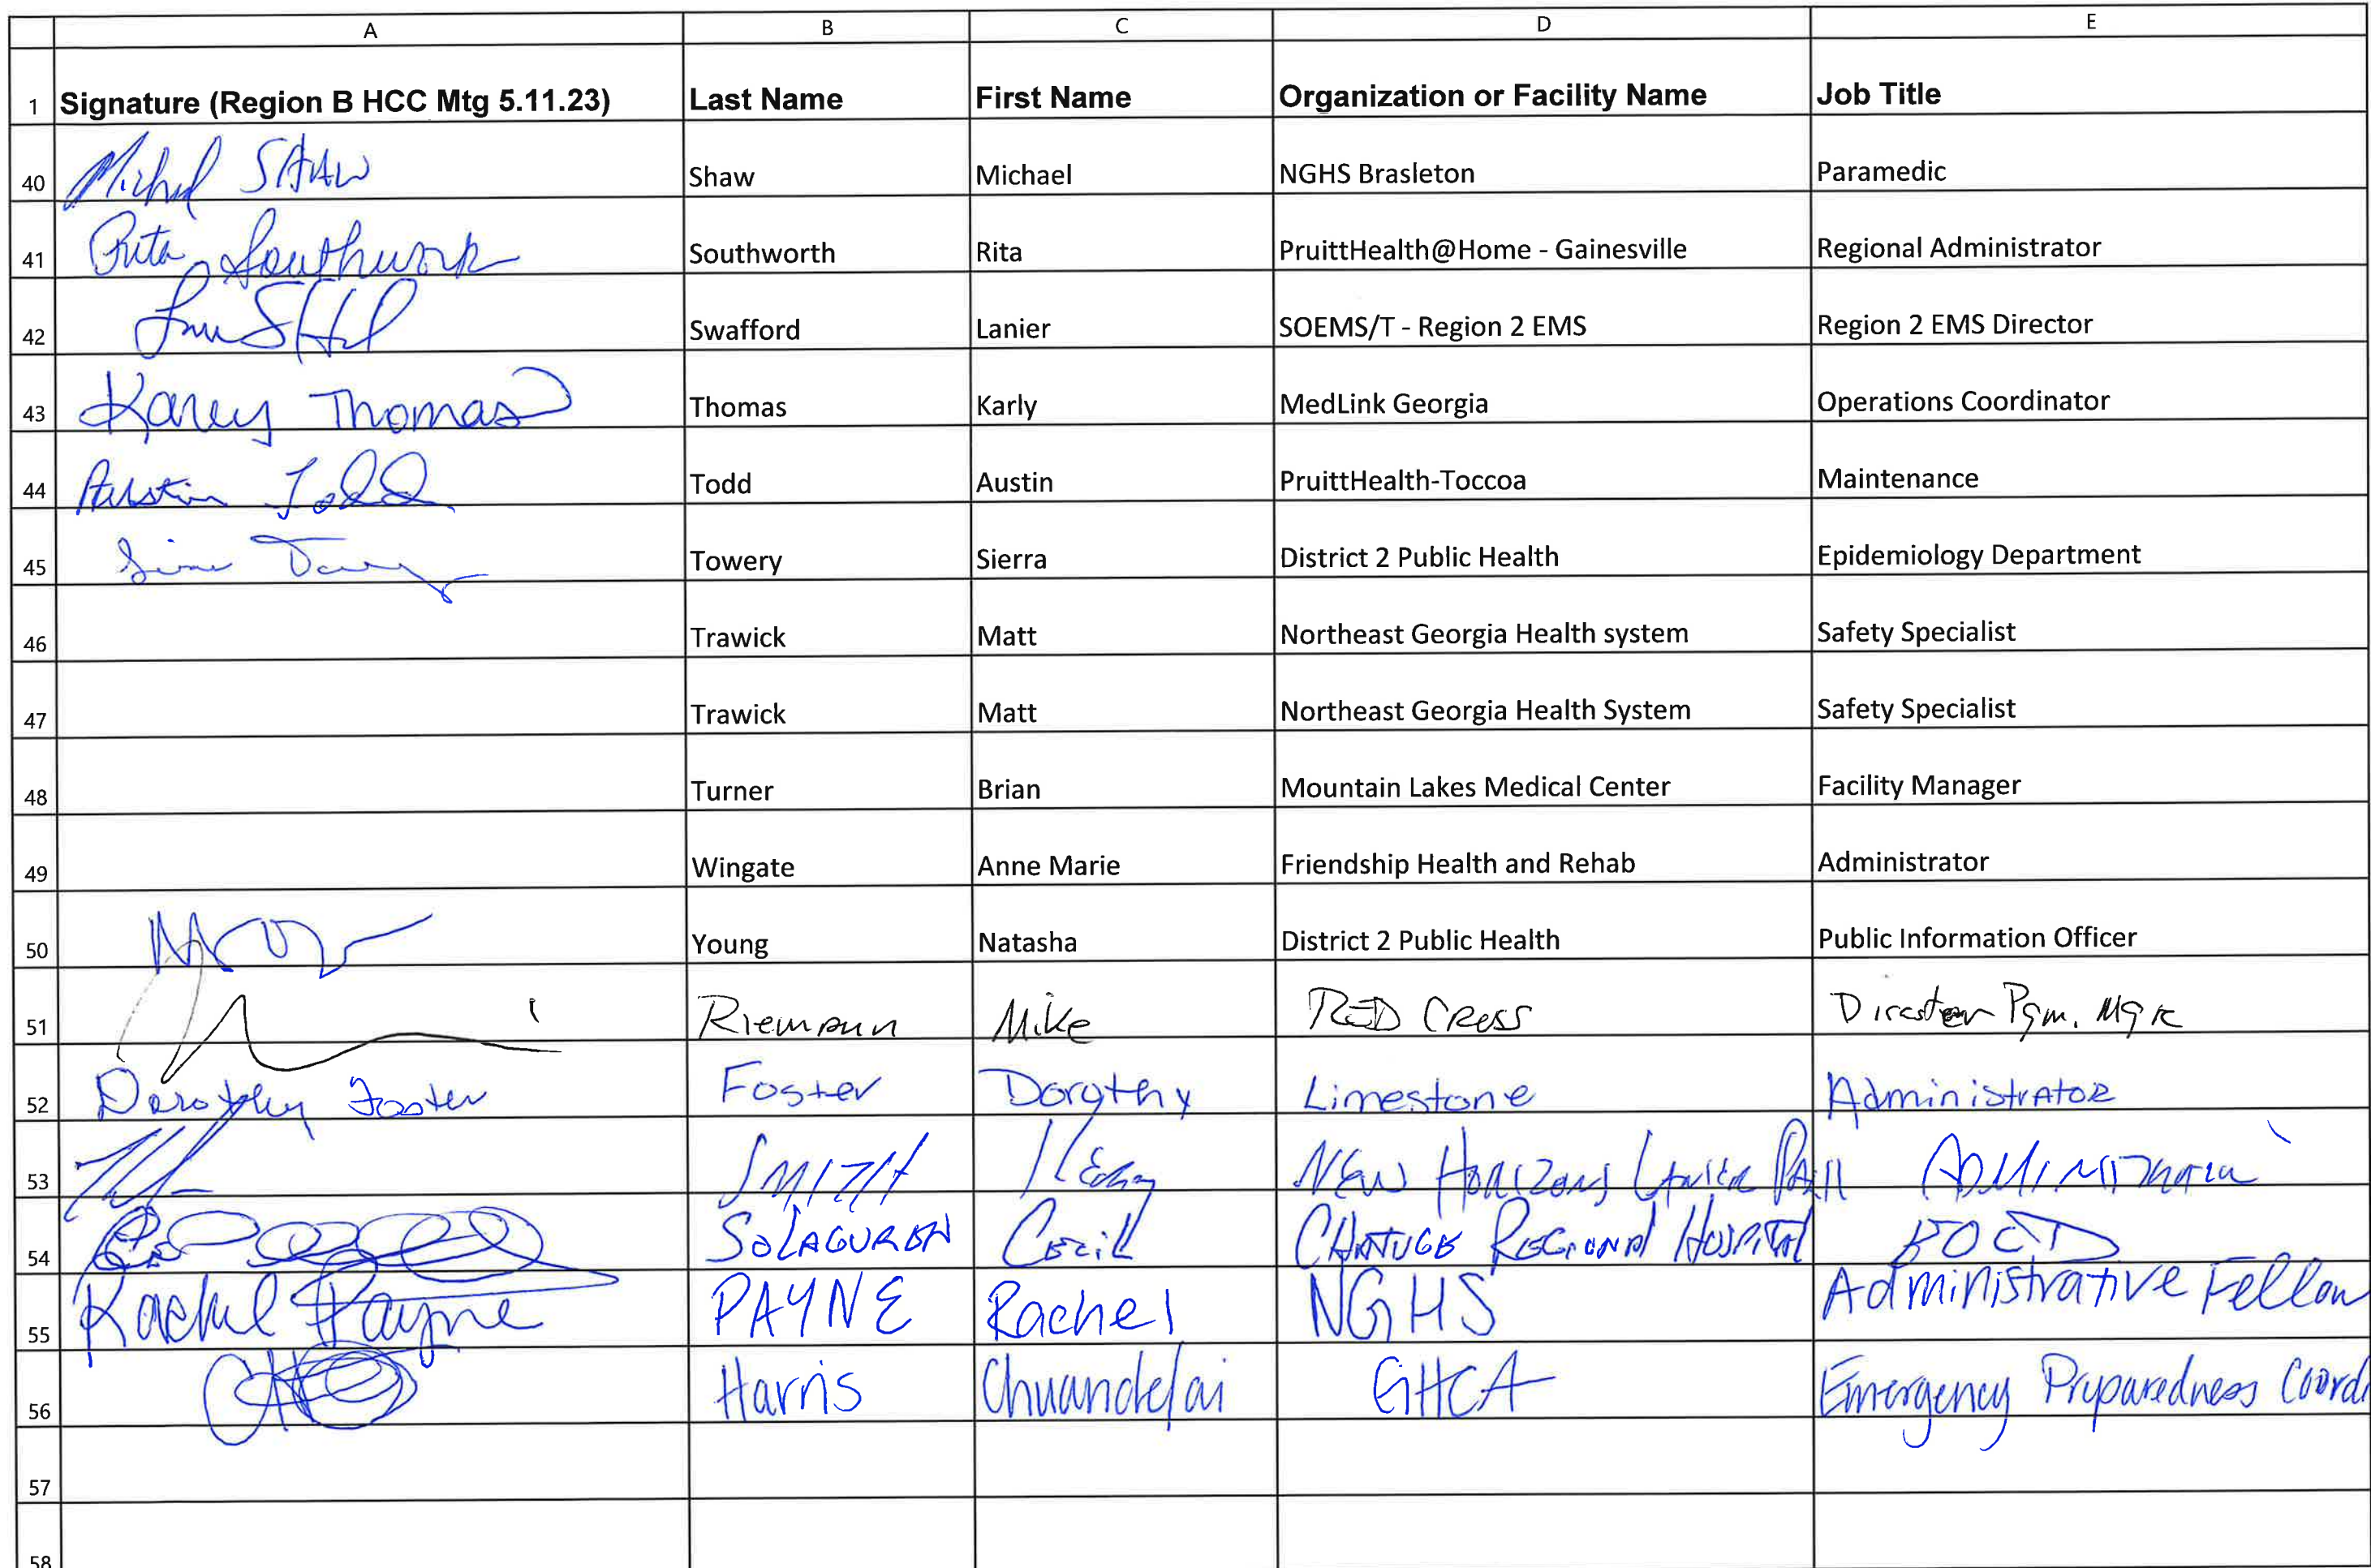 A B C D E
1 Signature (Region B HCC Mtg 5.11.23) Last Name First Name Organization or Facility Name Job Title
40 Michael SHAW Shaw Michael NGHS Brasleton Paramedic
41 Rita Southworth Southworth Rita PruittHealth@Home - Gainesville Regional Administrator
42 Swafford Lanier SOEMS/T - Region 2 EMS Region 2 EMS Director
43 Karly Thomas Thomas Karly MedLink Georgia Operations Coordinator
44 Austin Todd Todd Austin PruittHealth-Toccoa Maintenance
45 Towery Sierra District 2 Public Health Epidemiology Department
46 Trawick Matt Northeast Georgia Health system Safety Specialist
47 Trawick Matt Northeast Georgia Health System Safety Specialist
48 Turner Brian Mountain Lakes Medical Center Facility Manager
49 Wingate Anne Marie Friendship Health and Rehab Administrator
50 Young Natasha District 2 Public Health Public Information Officer
51 Riemann Mike RED CROSS Disaster Pgm. Mgr
52 Dorothy Foster Foster Dorothy Limestone Administrator
53 SMITH NEW HORIZONS
54 Cecil CHATUGE REGIONAL HOSPITAL
55 Rachel Payne PAYNE Rachel NGHS Administrative Fellow
56 Harris GHCA Emergency Preparedness Coord
57
58